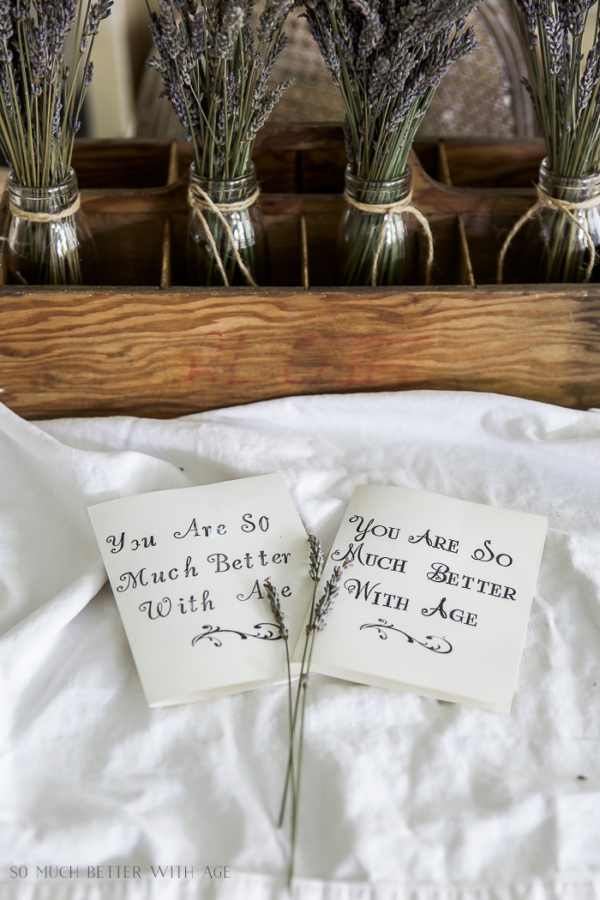 You Are So
Much Better
With Age
You Are So
Much Better
With Age
SO MUCH BETTER WITH AGE